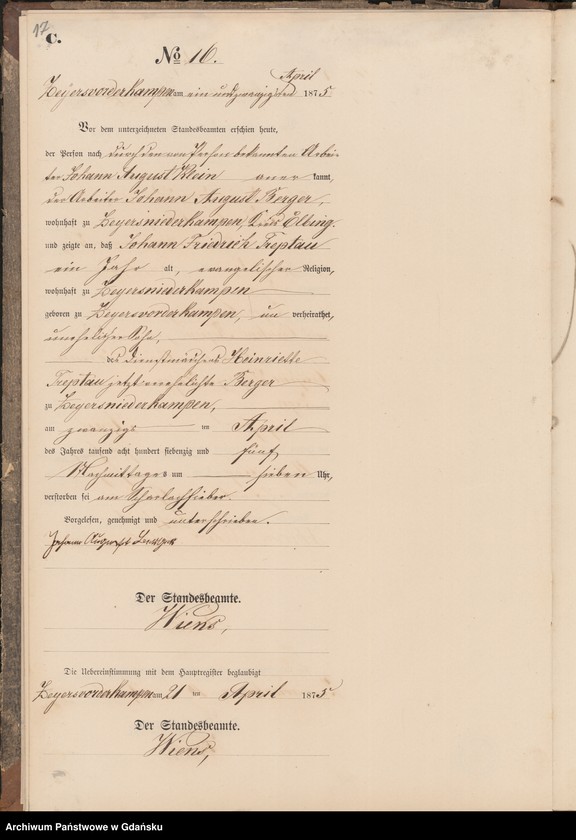 17
C.
No 16.
Zeyersvorderkampen am ein und zwanzigsten April 1875
Vor dem unterzeichneten Standesbeamten erschien heute,
der Person nach durch den von Person bekannten Arbei-
ter Johann August Klein aner kannt,
der Arbeiter Johann August Berger,
wohnhaft zu Zeyersniederkampen, Kreis Elbing
und zeigte an, daß Johann Friedrich Treptau
ein Jahr alt, evangelischer Religion,
wohnhaft zu Zeyersniederkampen
geboren zu Zeyersvorderkampen, un verheirathet,
unehelicher Sohn,
des Dienstmädchens Heinriette
Treptau jetzt verehelichte Berger
zu Zeyersniederkampen,
am zwanzigs im April
des Jahres tausend acht hundert siebenzig und fünf
Nachmittags um sieben Uhr,
verstorben sei am Scharlachfieber.
Vorgelesen, genehmigt und unterschrieben.
Johann August
Der Standesbeamte.
Wiens,
Die Uebereinstimmung mit dem Hauptregister beglaubigt
Zeyersvorderkampen am 21 ten April 1875
Der Standesbeamte.
Wiens,
Archiwum Państwowe w Gdańsku